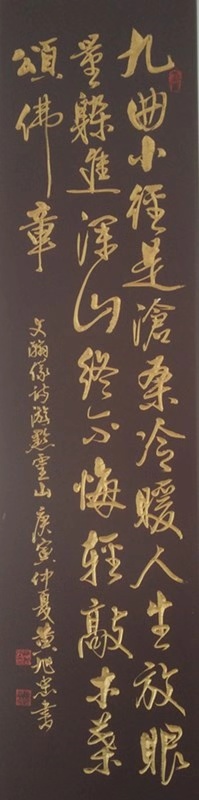 九曲小徑是滄桑冷暖人生放眼
量躲進深山終不悔輕敲木葉
頌佛章
文翰保詩游黔靈山庚寅仲夏黄旭忠書